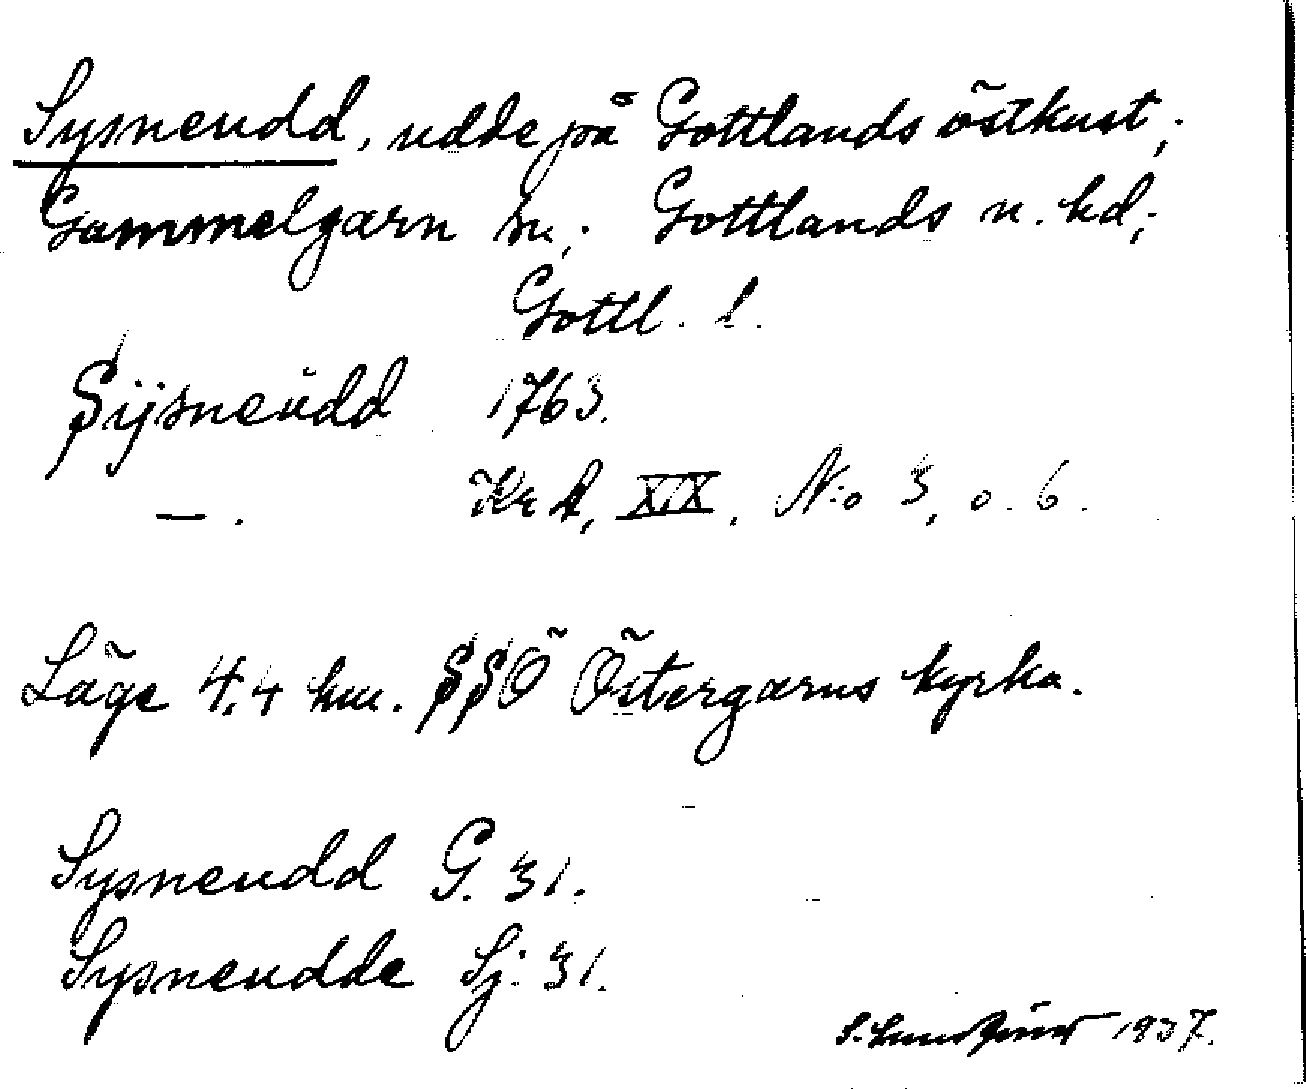 Sysneudd, udde på Gottlands östkust;
Gammelgarn sn; Gottlands n. hd;
Gottl. l.
Sijsneŭdd 1763.
—. Kr A, XIX, N:o 3, o. 6.
Läge 4,4 km. SSÖ Östergarns kyrka.
Sysneudd G. 31.
Sysneudde Sj. 31.
S. 1937.